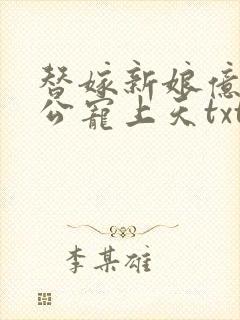 替嫁新娘亿
公宠上天txt
李某雄